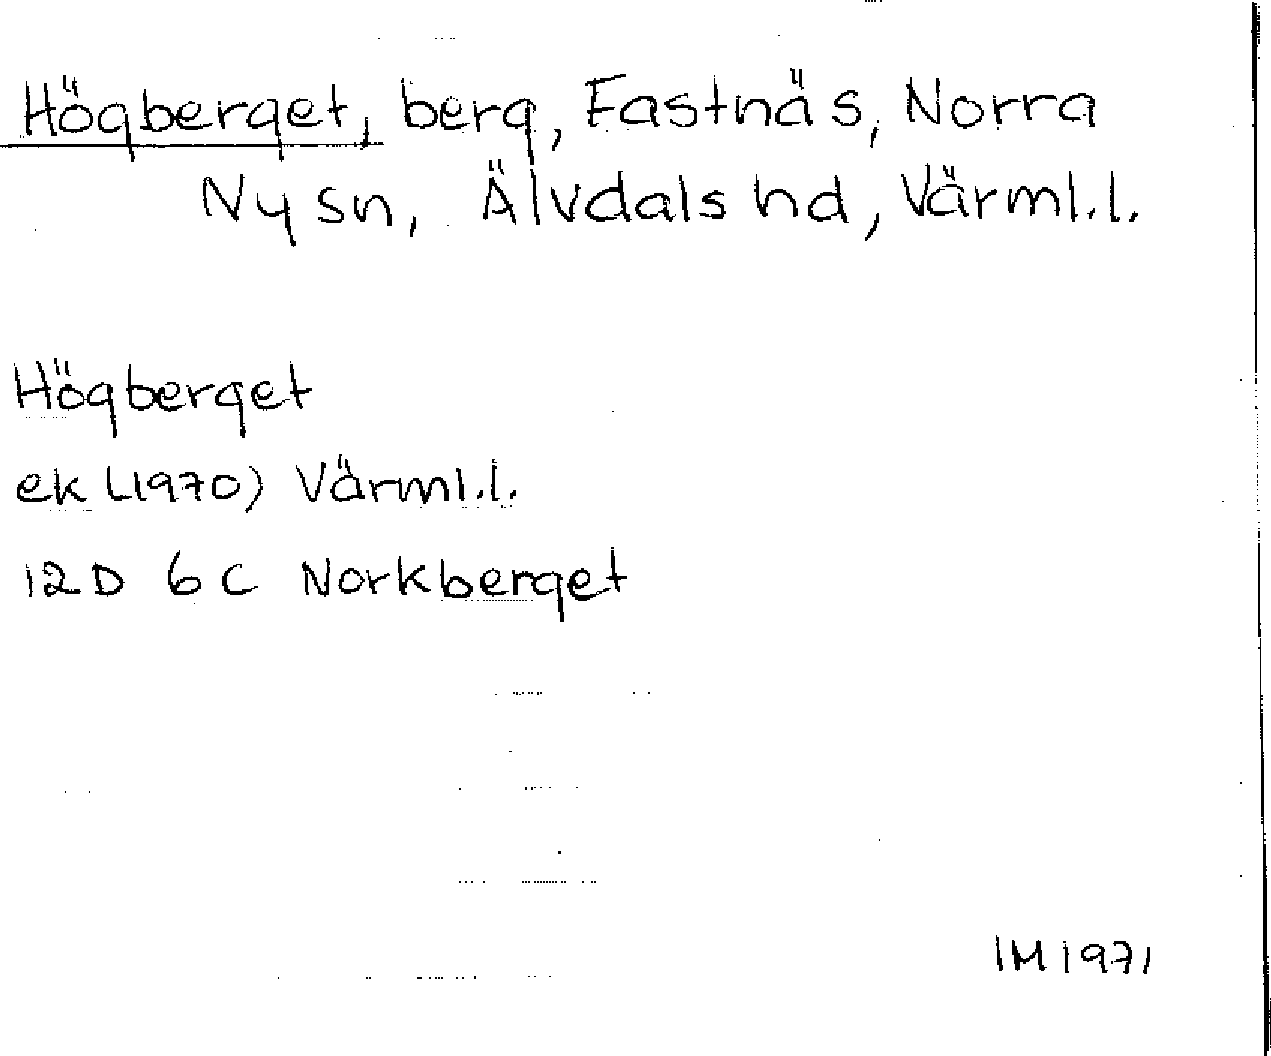 Högberget, berg, Fastnäs, Norra
Ny sn, Älvdals hd, Värml.l.
Högberget
ek (1970) Värml.l.
12D 6C Norkberget
IM 1971